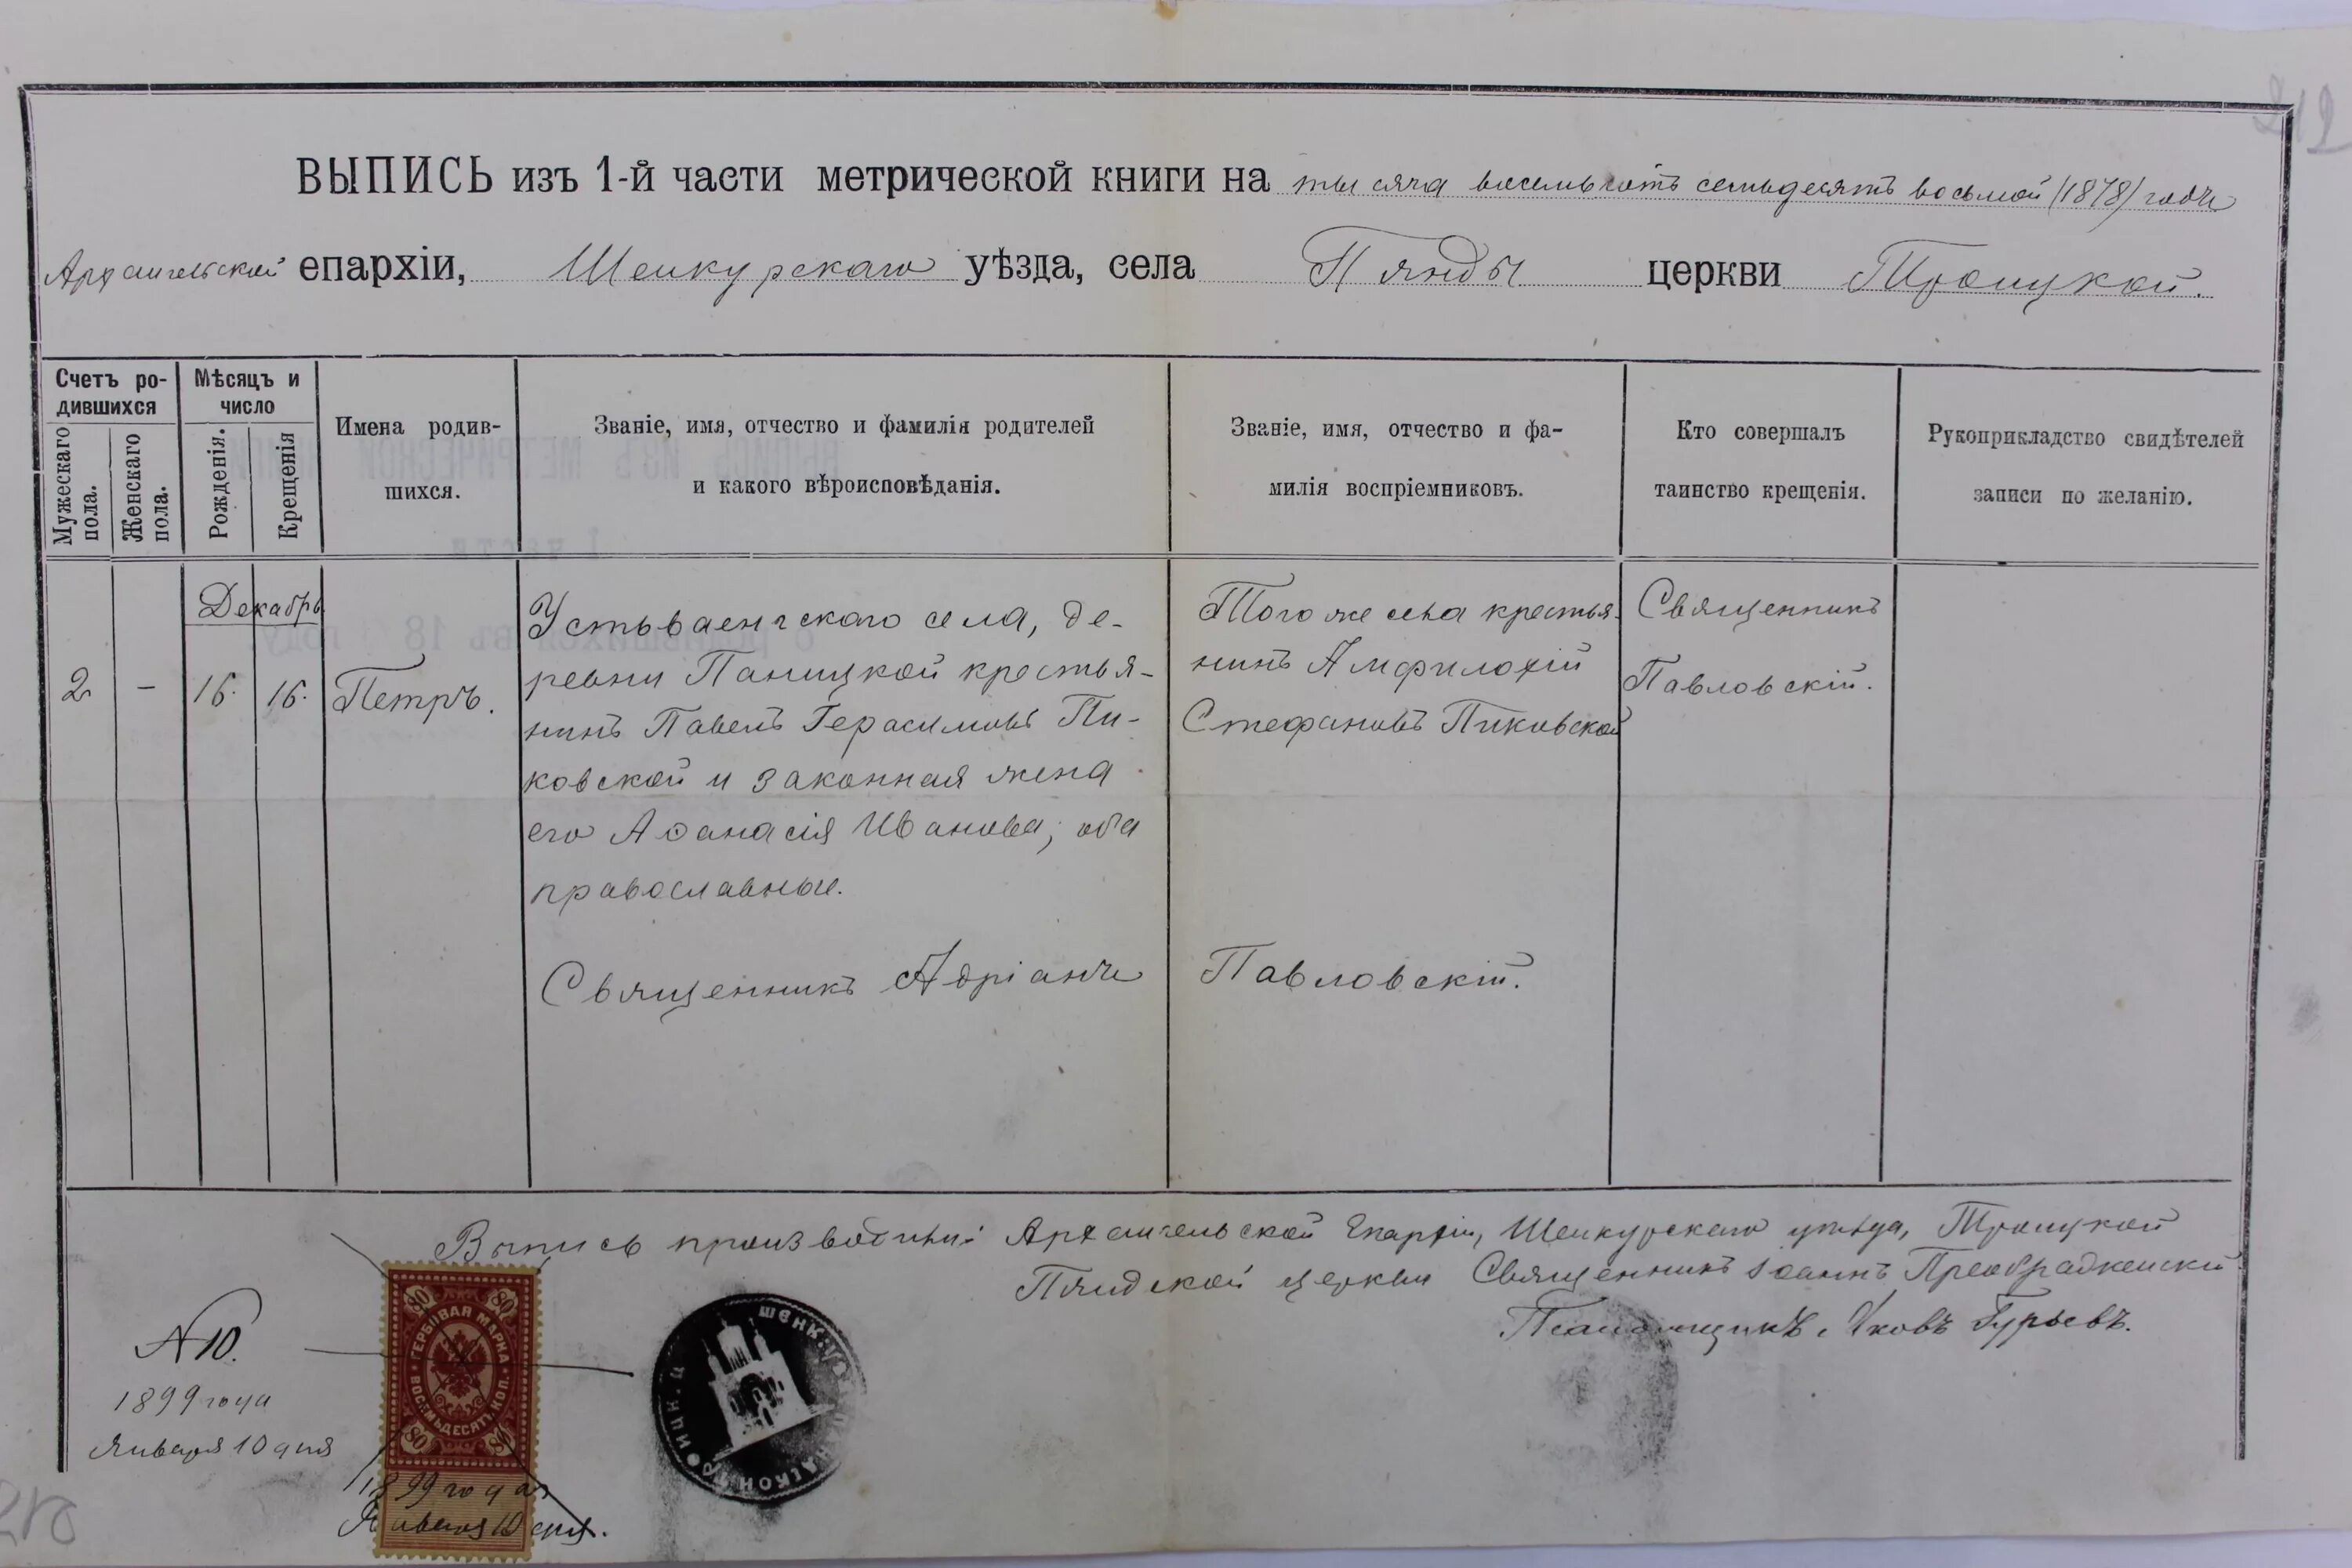 ВЫПИСЬ изъ 1-й части метрической книги на тысяча восемьсотъ семьдесятъ восьмой (1878) годъ
Архангельской епархіи, Шенкурскаго уѣзда, села Пянды церкви Троицкой.
Счетъ ро-
дившихся
Мужескаго
пола.
Женскаго
пола.
Мѣсяцъ и
число
Рожденія.
Крещенія
Имена родив-
шихся.
Званіе, имя, отчество и фамилія родителей
и какого вѣроисповѣданія.
Званіе, имя, отчество и фа-
милія воспріемниковъ.
Кто совершалъ
таинство крещенія.
Рукоприкладство свидѣтелей
записи по желанію.
2
-
Декабрь
16.
16.
Петръ.
Устьваенгскаго села, де-
ревни Паницкой крестья-
нинъ Павелъ Герасимовъ Пи-
ковской и законная жена
его Аѳанасія Иванова; оба
православные.
Того же села крестья-
нинъ Амфилохій
Стефановъ Пиковской
Священникъ
Павловскій.
Священникъ Адріанъ Павловскій.
Выпись производили: Архангельской Епархіи, Шенкурскаго уѣзда, Троицкой
Пяндской церкви Священникъ Іоаннъ Преображенскій
Псаломщикъ Яковъ Гурьевъ.
N 10.
1899 года
Января 10 дня
80 80
ГЕРБОВАЯ МАРКА
ВОСЕМЬДЕСЯТЪ КОП.
80 80
1899 года
Января 10 дня.
212